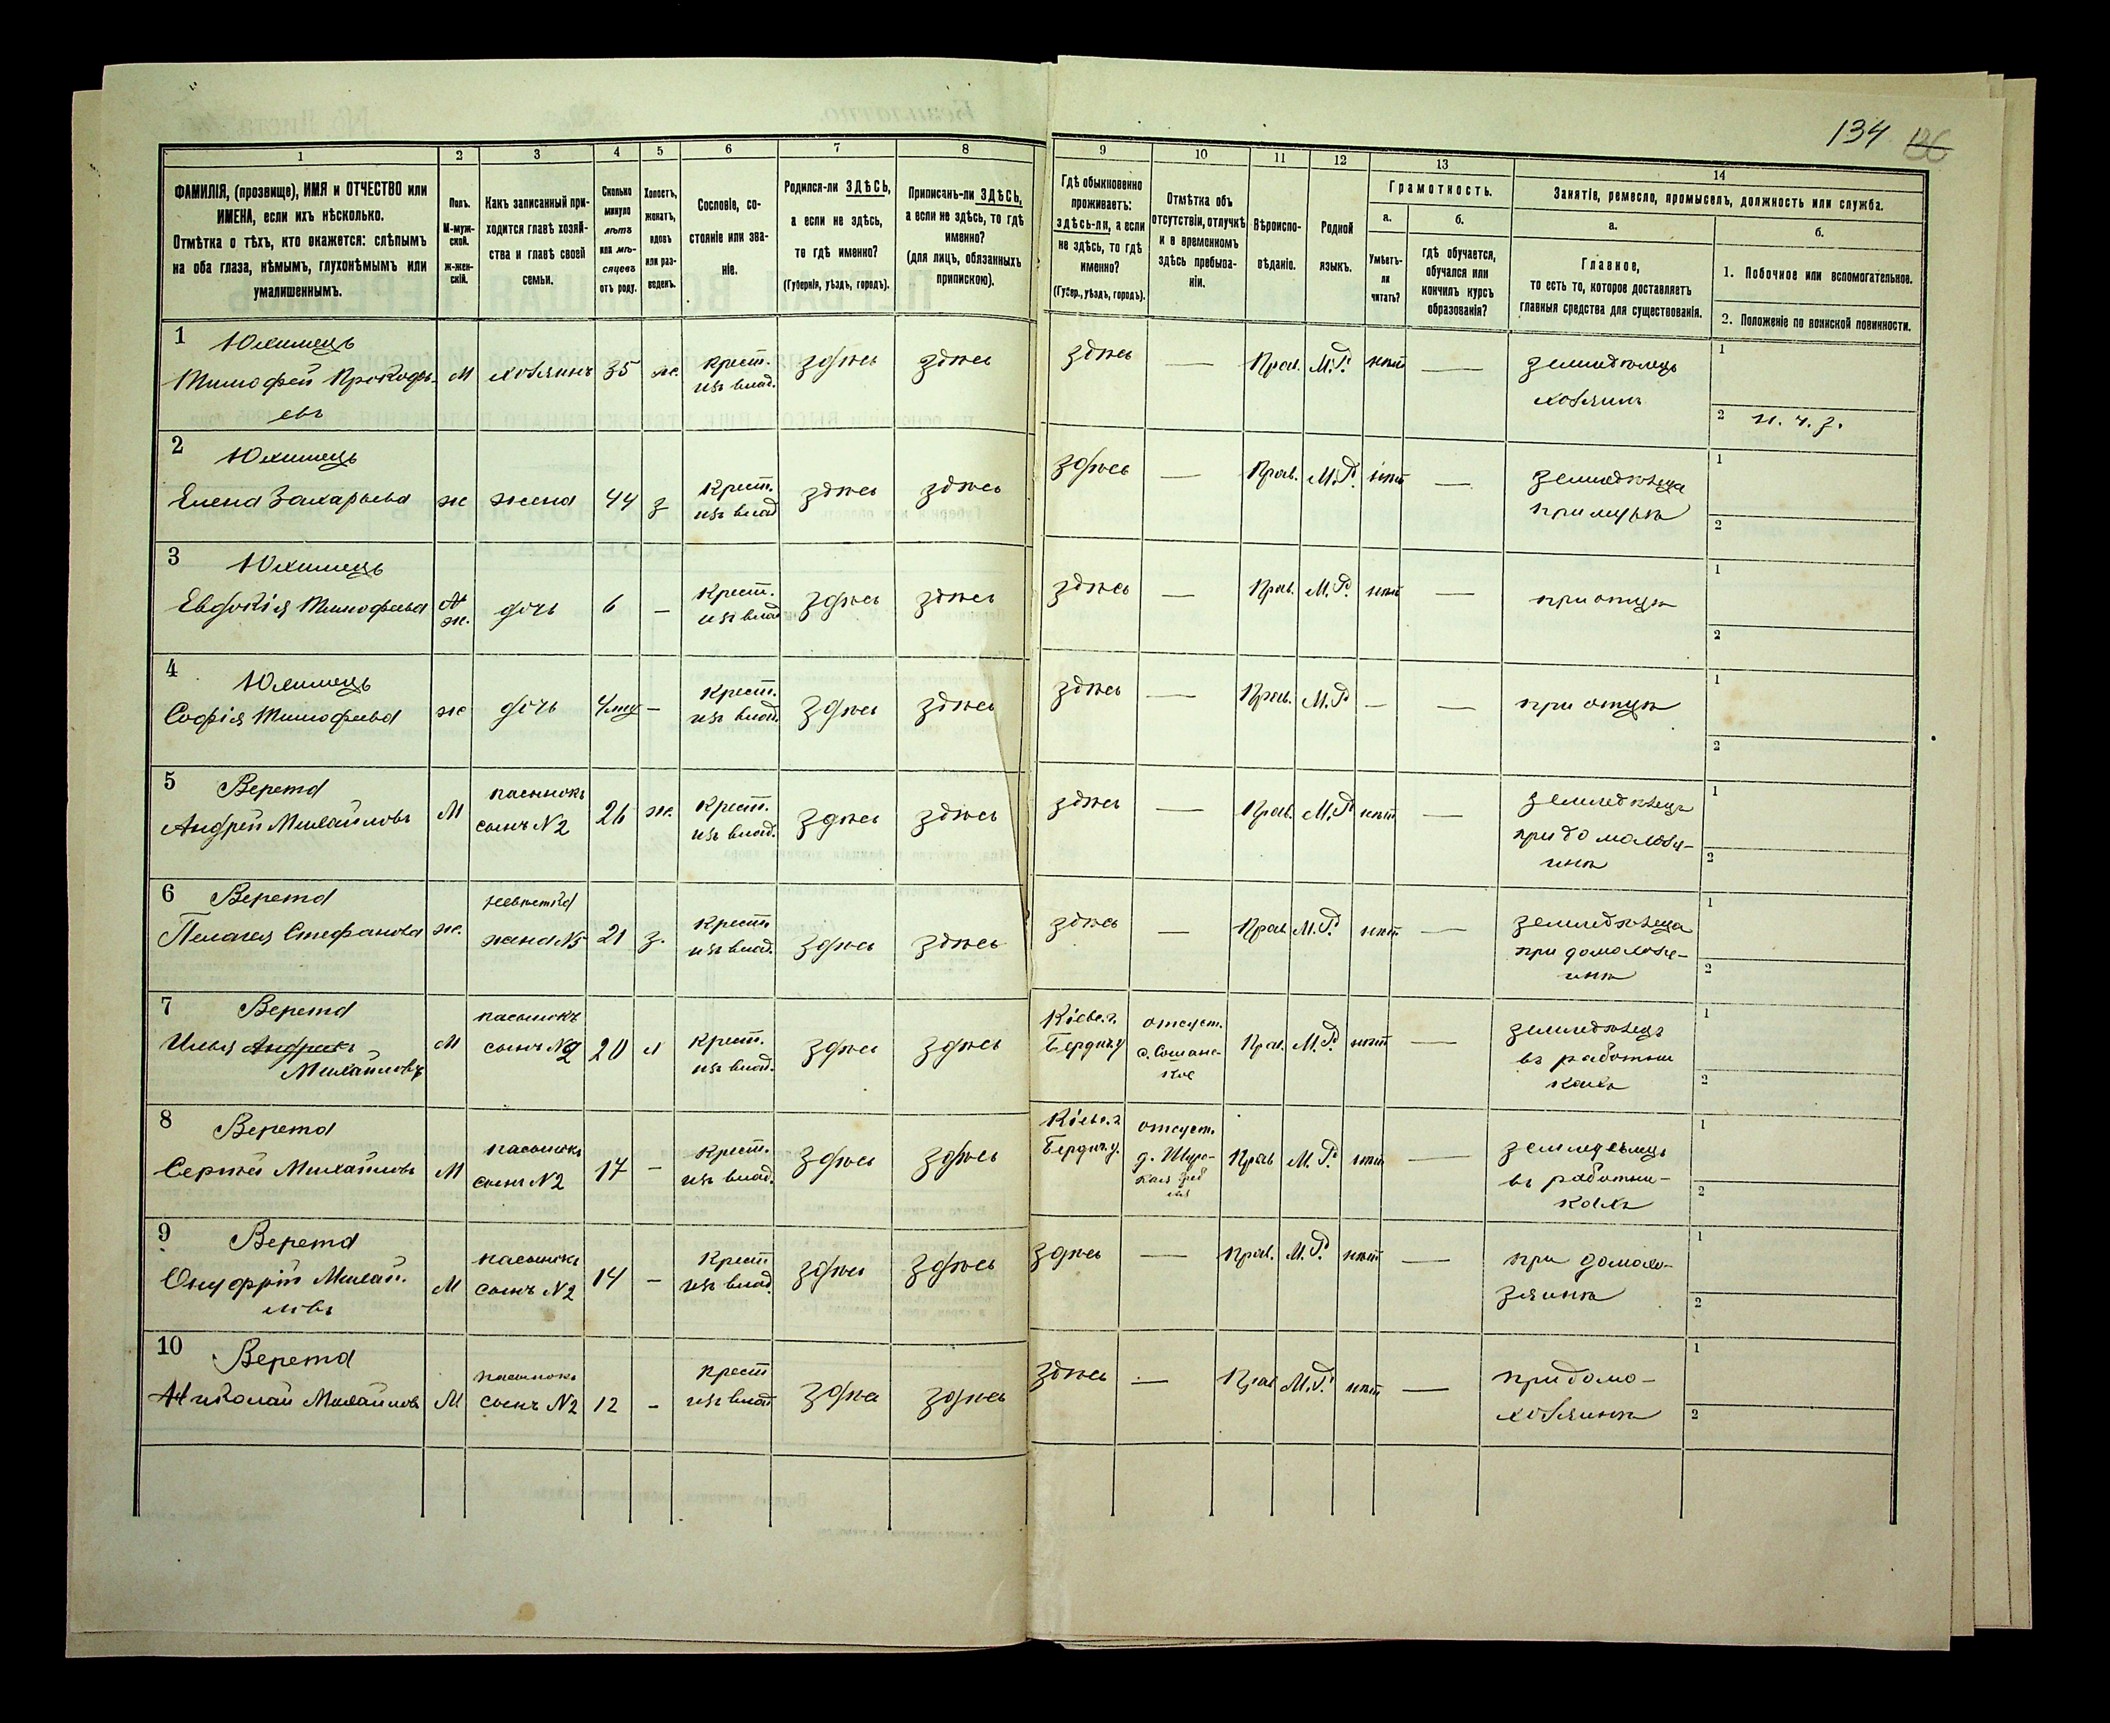 134 136
1 2 3 4 5 6 7 8 9 10 11 12 13 14
ФАМИЛІЯ, (прозвище), ИМЯ и ОТЧЕСТВО или ИМЕНА, если ихъ нѣсколько.
Отмѣтка о тѣхъ, кто окажется: слѣпымъ на оба глаза, нѣмымъ, глухонѣмымъ или умалишеннымъ.
Полъ. М-мужской. ж-женскій.
Какъ записанный приходится главѣ хозяйства и главѣ своей семьи.
Сколько минуло лѣтъ или мѣсяцевъ отъ роду.
Холостъ, женатъ, вдовъ или разведенъ.
Сословіе, состояніе или званіе.
Родился-ли ЗДѢСЬ, а если не здѣсь, то гдѣ именно? (Губернія, уѣздъ, городъ).
Приписанъ-ли ЗДѢСЬ, а если не здѣсь, то гдѣ именно? (для лицъ, обязанныхъ припискою).
Гдѣ обыкновенно проживаетъ: здѣсь-ли, а если не здѣсь, то гдѣ именно? (Губер., уѣздъ, городъ).
Отмѣтка объ отсутствіи, отлучкѣ и о временномъ здѣсь пребываніи.
Вѣроисповѣданіе.
Родной языкъ.
Грамотность.
а. Умѣетъ-ли читать?
б. гдѣ обучается, обучался или кончилъ курсъ образованія?
Занятіе, ремесло, промыселъ, должность или служба.
а. Главное, то есть то, которое доставляетъ главныя средства для существованія.
б. 1. Побочное или вспомогательное.
2. Положеніе по воинской повинности.
1 Юхимецъ
Тимофей Прокофьевъ М хозяинъ 35 ж. крест. изъ влад. здѣсь здѣсь здѣсь — Прав. М.Р. нѣтъ — земледѣлецъ хозяинъ 1 2 н. ч. з.
2 Юхимецъ
Елена Захарьева ж жена 44 з крест. изъ влад здѣсь здѣсь здѣсь — Прав. М.Р. нѣтъ — земледѣлица при мужѣ 1 2
3 Юхимецъ
Евдокія Тимофеева ж. дочь 6 — крест. изъ влад здѣсь здѣсь здѣсь — Прав. М.Р. нѣтъ — при отцѣ 1 2
4 Юхимецъ
Софія Тимофеева ж дочь 4 мц — крест. изъ влад. здѣсь здѣсь здѣсь — Прав. М.Р — — при отцѣ 1 2
5 Верета
Андрей Михайловъ М пасынокъ сынъ N2 26 ж. крест. изъ влад. здѣсь здѣсь здѣсь — Прав. М.Р нѣтъ — земледѣлецъ при домохозяинѣ 1 2
6 Верета
Пелагея Стефанова ж. невѣстка жена N5 21 з. крест изъ влад. здѣсь здѣсь здѣсь — Прав М.Р. нѣтъ — земледѣлица при домохозяинѣ 1 2
7 Верета
Илья Андреевъ Михайловъ М пасынокъ сынъ N2 20 х крест. изъ влад. здѣсь здѣсь Кіевс. г. Бердич у отсут. Прав. М.Р. нѣтъ — земледѣлецъ въ работникахъ 1 2
8 Верета
Сергѣй Михайловъ М пасынокъ сынъ N2 17 — крест. изъ влад. здѣсь здѣсь Кіевс. г Бердич у. отсут. Прав М.Р. нѣтъ — земледѣлецъ въ работникахъ 1 2
9 Верета
Онуфрій Михайловъ М пасынокъ сынъ N2 14 — крест изъ влад. здѣсь здѣсь здѣсь — прав. М.Р. нѣтъ — при домохозяинѣ 1 2
10 Верета
Николай Михайловъ М пасынокъ сынъ N2 12 — крест изъ влад здѣсь здѣсь здѣсь — Прав М.Р. нѣтъ — при домохозяинѣ 1 2